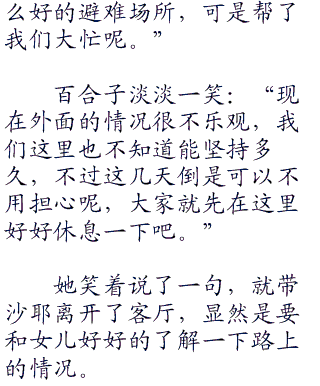 么好的避难场所，可是帮了
我们大忙呢。”
百合子淡淡一笑：“现
在外面的情况很不乐观，我
们这里也不知道能坚持多
久，不过这几天倒是可以不
用担心呢，大家就先在这里
好好休息一下吧。”
她笑着说了一句，就带
沙耶离开了客厅，显然是要
和女儿好好的了解一下路上
的情况。